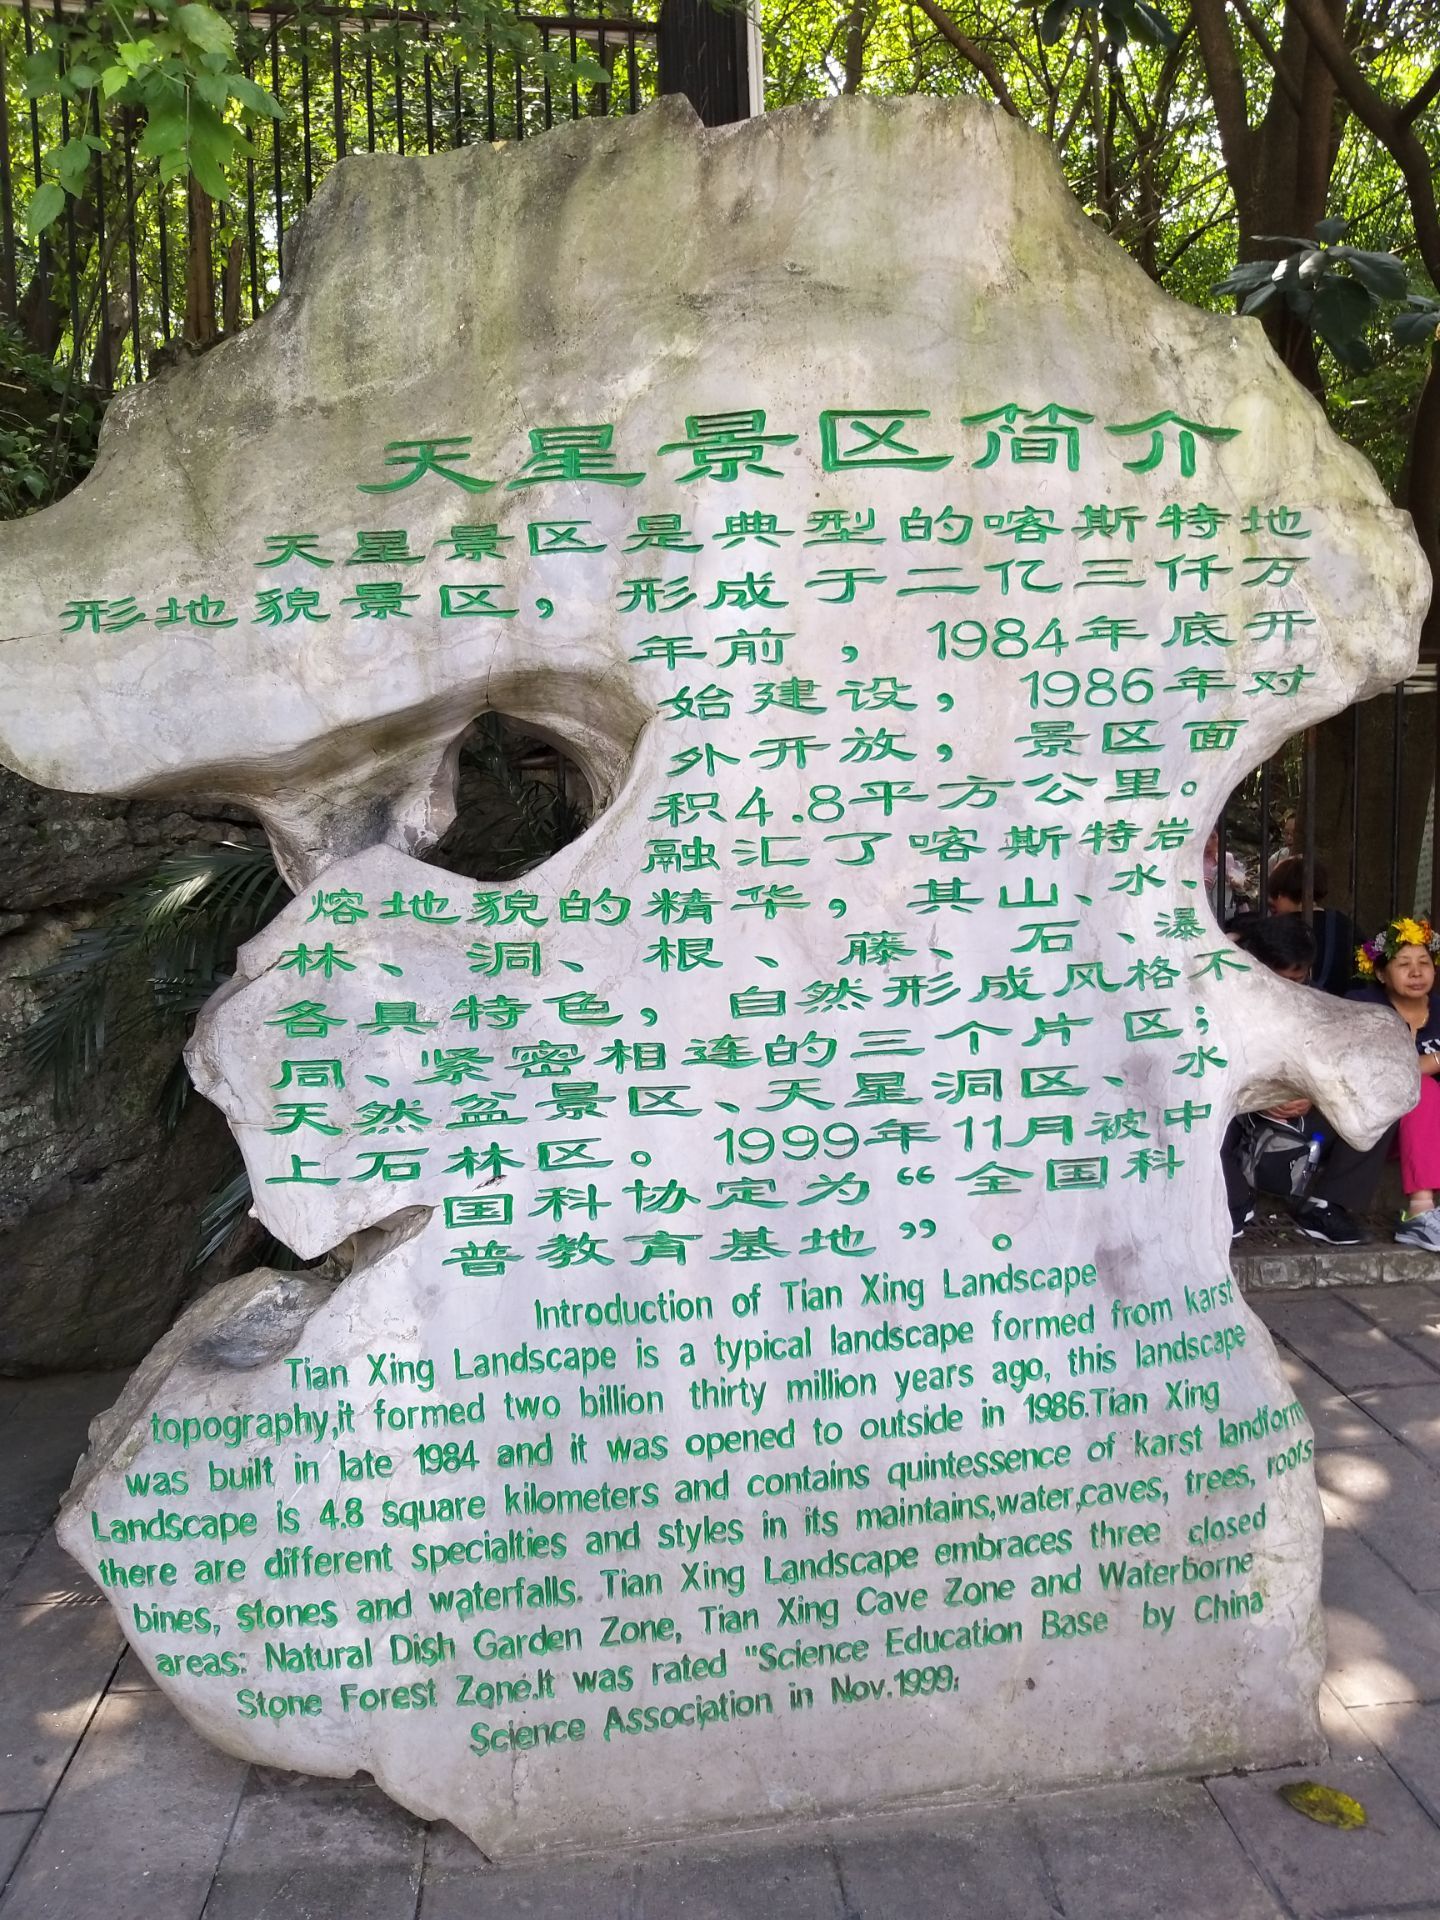 天星景区简介
天星景区是典型的喀斯特地
形地貌景区，形成于二亿三仟万
年前，1984年底开
始建设，1986年对
外开放，景区面
积4.8平方公里。
融汇了喀斯特岩
熔地貌的精华，其山、水、
林、洞、根、藤、石、瀑
各具特色，自然形成风格不
同、紧密相连的三个片区；
天然盆景区、天星洞区、水
上石林区。1999年11月被中
国科协定为“全国科
普教育基地”。
Introduction of Tian Xing Landscape
Tian Xing Landscape is a typical landscape formed from karst
topography,it formed two billion thirty million years ago, this landscape
was built in late 1984 and it was opened to outside in 1986.Tian Xing
Landscape is 4.8 square kilometers and contains quintessence of karst landform
there are different specialties and styles in its maintains,water,caves, trees, roots
bines, stones and waterfalls. Tian Xing Landscape embraces three closed
areas: Natural Dish Garden Zone, Tian Xing Cave Zone and Waterborne
Stone Forest Zone.It was rated "Science Education Base by China
Science Association in Nov.1999;